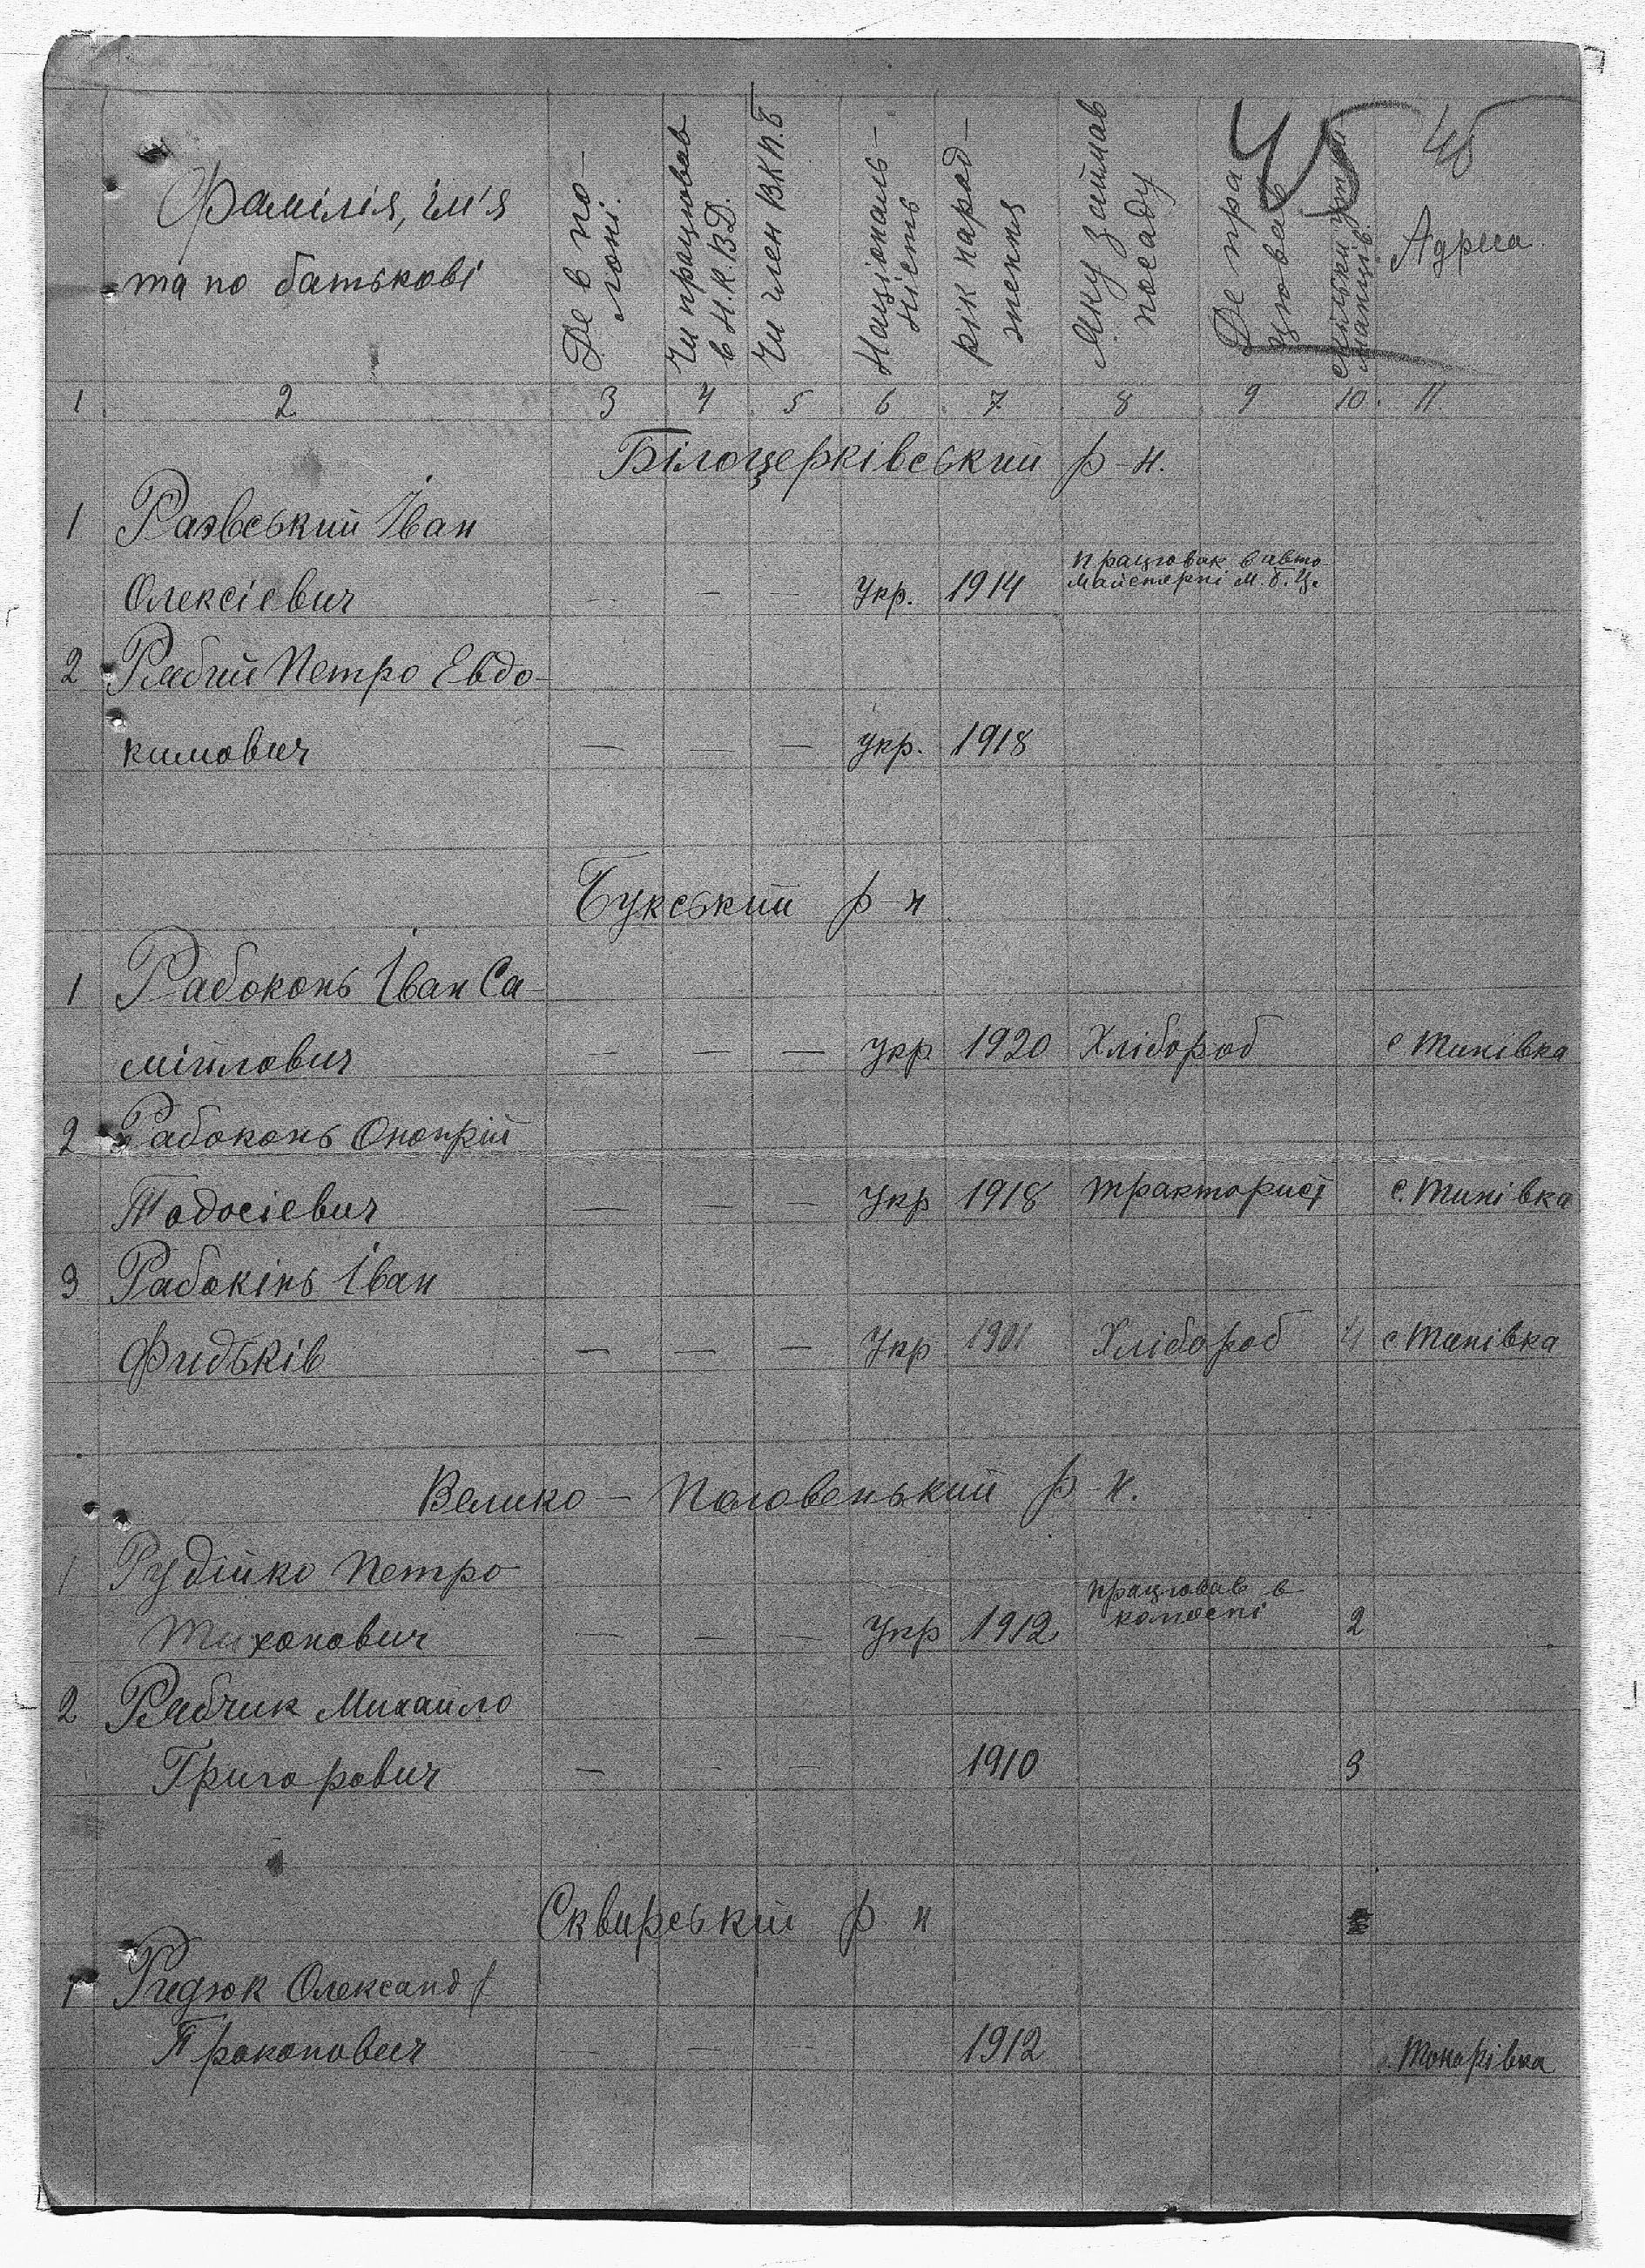 45
Фамілія, ім'я
та по батькові
Де в по-
лоні.
Чи працював
в Н.К.В.Д.
Чи член ВКП.б
Національ-
ність
рік народ-
ження
Яку займав
посаду
Де пра
цював
скільки утри
манців.
Адреса
1 2 3 4 5 6 7 8 9 10. 11.
Білоцерківський р-н.
1 Раєвський Іван
працював в авто
майстерні м. б. ц.
Олексієвич - - - Укр. 1914
2 Рябий Петро Евдо-
кимович — — — укр. 1918
Букський р-н
1 Рабоконь Іван Са-
мійлович — — — Укр 1920 Хлібороб с Тинівка
2 Рабоконь Онопрій
Тодосіевич — — — Укр 1918 тракторист с. Тинівка
3 Рабокінь Іван
Фидьків — — — Укр 1901 Хлібороб 4 с Тинівка
Велико-Половенький р-н.
1 Рудійко Петро
працював в
колоспі
Тихонович — — — Укр 1912 2
2 Рябчик Михайло
Григорович — - — 1910 3
Сквирський р н
1 Редюк Олександр
Прокопович — — - 1912 Токарівка